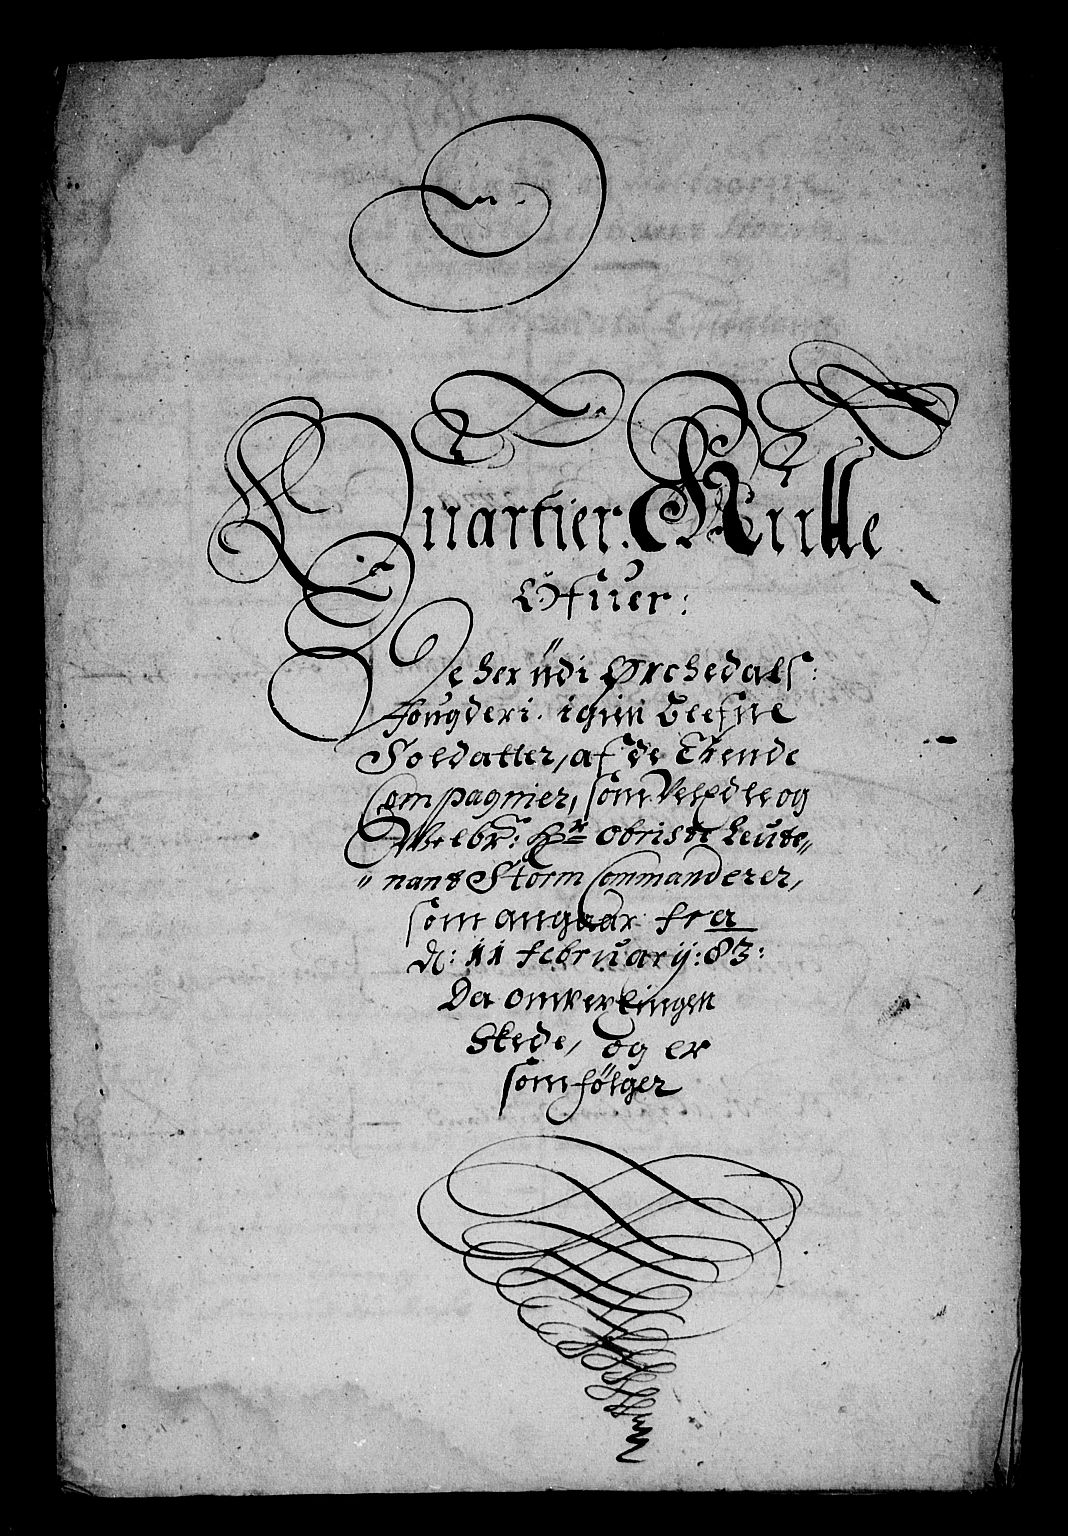 Quartier: Rulle
Ofuer:
De her udi Ørchedals:
fougderi. igien blefne
Soldatter, af de Trende
Compagnier, som Velædle og
Welbr: Hr Obriste Leute„
„ nant Storm Commanderer,
som angaar fra
d: 11 februarÿ: 83:
Da omverlingen
Skede, og er
som følger